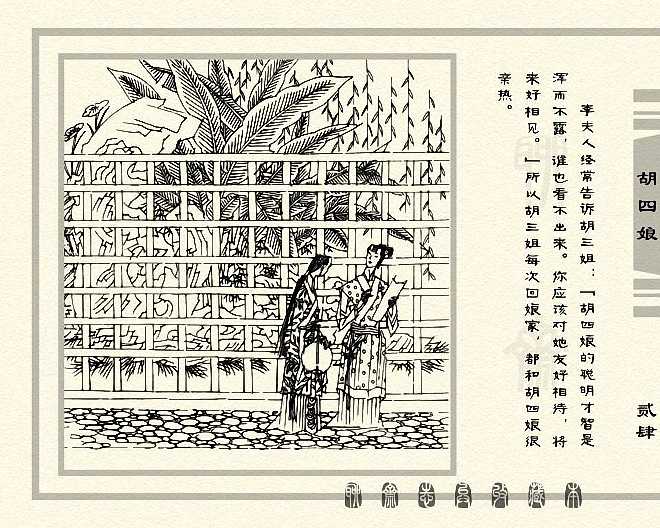 李夫人经常告诉胡三姐:「胡四娘的聪明才智是
浑而不露,谁也看不出来。你应该对她友好相待,将
来好相见。」所以胡三姐每次回娘家,都和胡四娘很
亲热。
胡四娘
贰肆
聊斋志异收藏本